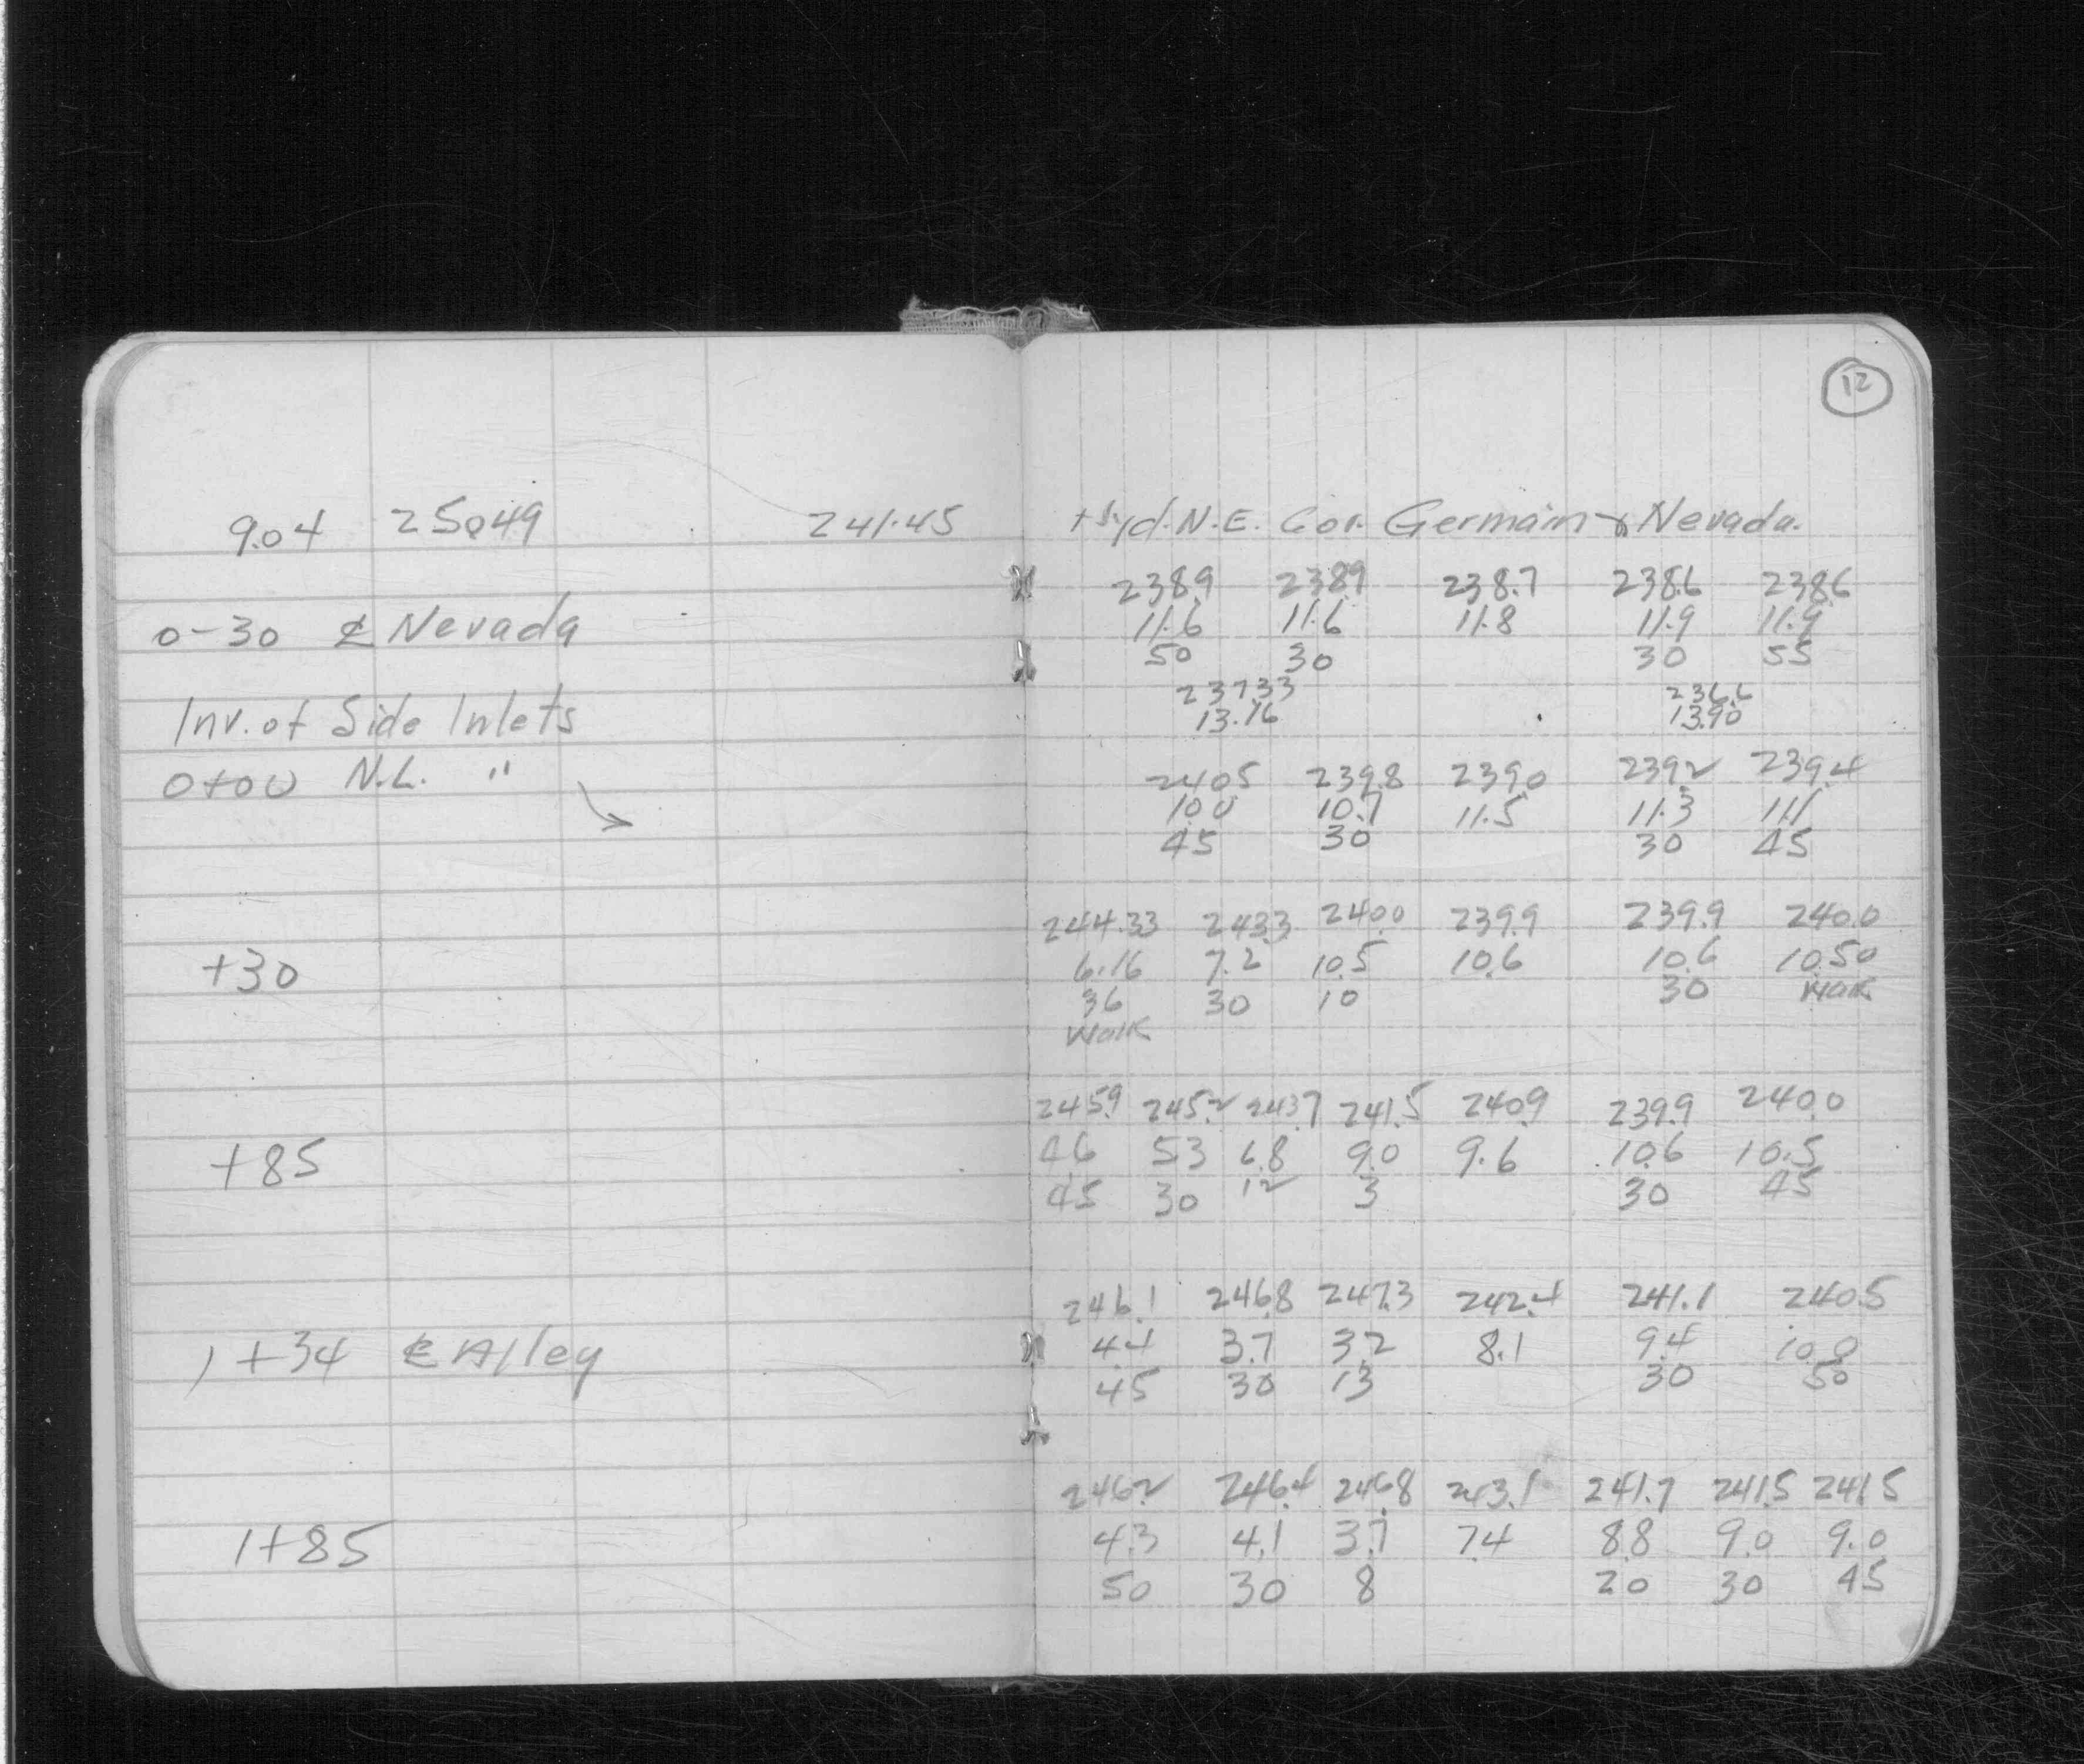 12
9.04 250.49 241.45 Hyd. N.E. Cor. Germain & Nevada.
238.9 238.9 238.7 238.6 238.6
0-30 ℄ Nevada 11.6 11.6 11.8 11.9 11.9
50 30 30 55
Inv. of Side Inlets 237.33 236.6
13.16 13.90
0+00 N.L. " 240.5 239.8 239.0 239.2 239.4
10.0 10.7 11.5 11.3 11.1
45 30 30 45
244.33 243.3 240.0 239.9 239.9 240.0
+30 6.16 7.2 10.5 10.6 10.6 10.50
36 30 10 30 Walk
Walk
245.9 245.2 243.7 241.5 240.9 239.9 240.0
+85 4.6 5.3 6.8 9.0 9.6 10.6 10.5
45 30 12 3 30 45
246.1 246.8 247.3 242.4 241.1 240.5
1+34 ℄ Alley 4.4 3.7 3.2 8.1 9.4 10.0
45 30 13 30 50
246.2 246.4 246.8 243.1 241.7 241.5 241.5
1+85 4.3 4.1 3.7 7.4 8.8 9.0 9.0
50 30 8 20 30 45